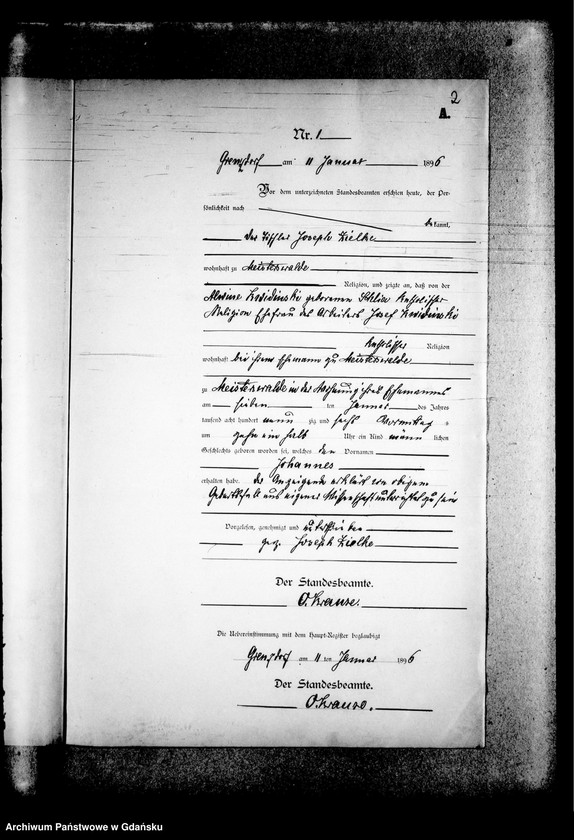 2
A.
Nr. 1
Grenzdorf am 11 Januar 1896
Vor dem unterzeichneten Standesbeamten erschien heute, der Per-
sönlichkeit nach
bekannt,
der Tischler Joseph Zielke
wohnhaft zu Meisterswalde
Religion, und zeigte an, daß von der
geborenen katholischer
Religion Ehefrau des Arbeiters Josef
katholischer Religion
wohnhaft bei ihrem Ehemann zu Meisterswalde
zu Meisterswalde in der Wohnung ihres Ehemannes
am sieben ten Januar des Jahres
tausend acht hundert neun zig und sechs Vormittag s
um zehn ein halb Uhr ein Kind männ lichen
Geschlechts geboren worden sei, welches den Vornamen
Johannes
erhalten habe. der Anzeigende erklärt von obigem
Geburtsfalle aus eigener Wissenschaft unterrichtet zu sein
Vorgelesen, genehmigt und unterschrieben
gez. Joseph Zielke
Der Standesbeamte.
O. Krause.
Die Uebereinstimmung mit dem Haupt-Register beglaubigt
Grenzdorf am 11 ten Januar 1896
Der Standesbeamte.
O. Krause.
Archiwum Państwowe w Gdańsku